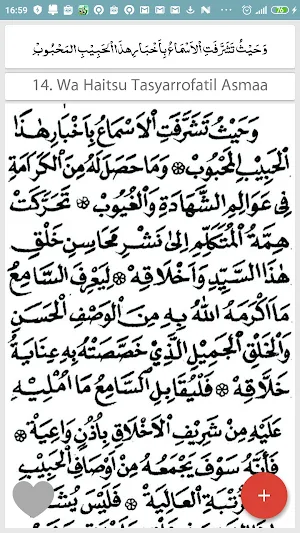 16:59
وَحَيْثُ تَشَرَّفَتِ الْاَسْمَاعُ بِاَخْبَارِ هٰذَا الْحَبِيْبِ الْمَحْبُوْبْ
14. Wa Haitsu Tasyarrofatil Asmaa
وَحَيْثُ تَشَرَّفَتِ الْاَسْمَاعُ بِاَخْبَارِ هٰذَا
الْحَبِيْبِ الْمَحْبُوْبِ ۞ وَمَا حَصَلَ لَهُ مِنَ الْكَرَامَةِ
فِي عَوَالِمِ الشَّهَادَةِ وَالْغُيُوْبِ ۞ تَحَرَّكَتْ
هِمَّةُ الْمُتَكَلِّمِ اِلَى نَشْرِ مَحَاسِنِ خَلْقِ
هٰذَا السَّيِّدِ وَاَخْلَاقِهْ ۞ لِيَعْرِفَ السَّامِعُ
مَا اَكْرَمَهُ اللهُ بِهِ مِنَ الْوَصْفِ الْحَسَنِ
وَالْخَلْقِ الْجَمِيْلِ الَّذِيْ خَصَّصَتْهُ بِهِ عِنَايَةُ
خَلَّاقِهْ ۞ فَلْيُقَابِلِ السَّامِعُ مَا اُمْلِيْهِ
عَلَيْهِ مِنْ شَرِيْفِ الْاَخْلَاقِ بِاُذُنٍ وَاعِيَةْ ۞
فَاِنَّهُ سَوْفَ يَجْمَعُهُ مِنْ اَوْصَافِ الْحَبِيْبِ
الْعَالِيَةْ ۞ فَلَيْسَ